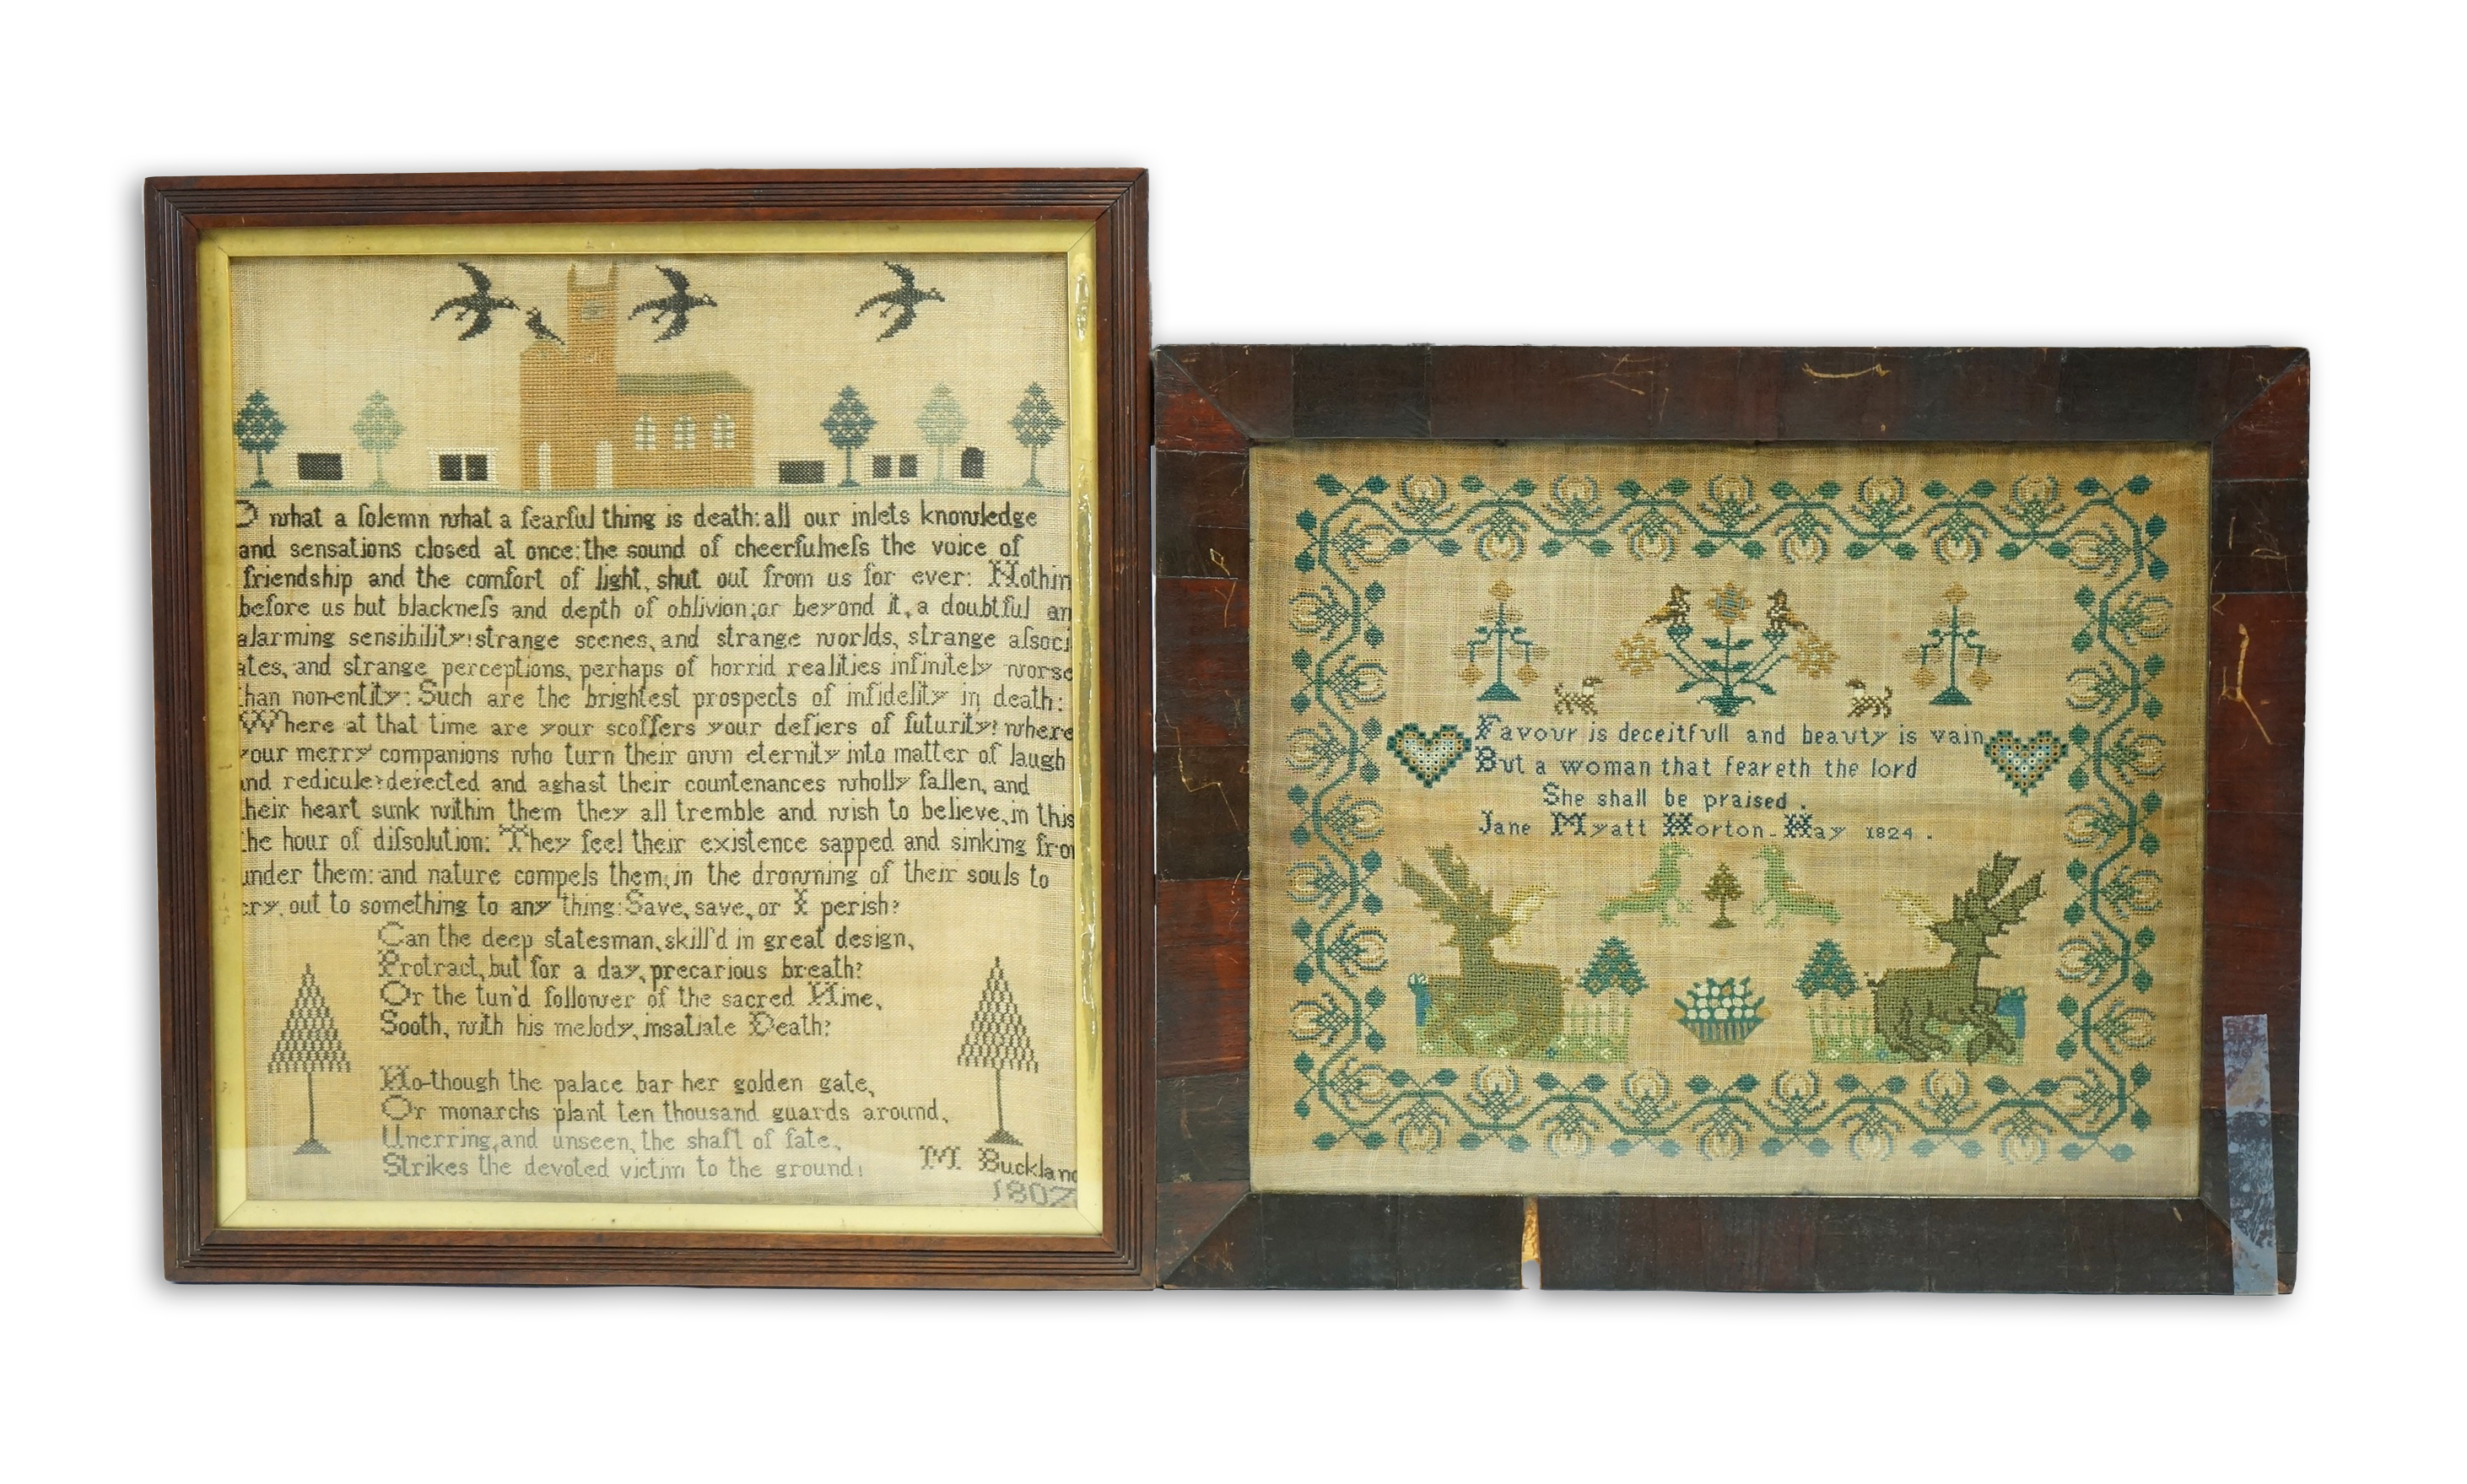 O what a ſolemn what a fearful thing is death: all our inlets knowledge
and sensations closed at once: the sound of cheerfulneſs the voice of
friendship and the comfort of light, shut out from us for ever: Nothin
before us but blackneſs and depth of oblivion; or beyond it, a doubtful an
alarming sensibility! strange scenes, and strange worlds, strange aſsoci
ates, and strange perceptions, perhaps of horrid realities infinitely worse
than non-entity: Such are the brightest prospects of infidelity in death:
Where at that time are your scoffers your defiers of futurity! where
your merry companions who turn their own eternity into matter of laugh
and redicule? dejected and aghast their countenances wholly fallen, and
their heart sunk within them they all tremble and wish to believe, in this
the hour of diſsolution: They feel their existence sapped and sinking fro
under them: and nature compels them, in the drowning of their souls to
cry, out to something to any thing: Save, save, or I perish?
Can the deep statesman, skill'd in great design,
Protract, but for a day, precarious breath?
Or the tun'd follower of the sacred Nine,
Sooth, with his melody, insatiate Death?
No-though the palace bar her golden gate,
Or monarchs plant ten thousand guards around,
Unerring, and unseen, the shaft of fate,
Strikes the devoted victim to the ground!
M. Buckland
1807
Favour is deceitfull and beauty is vain
But a woman that feareth the lord
She shall be praised.
Jane Myatt Horton-Hay 1824.